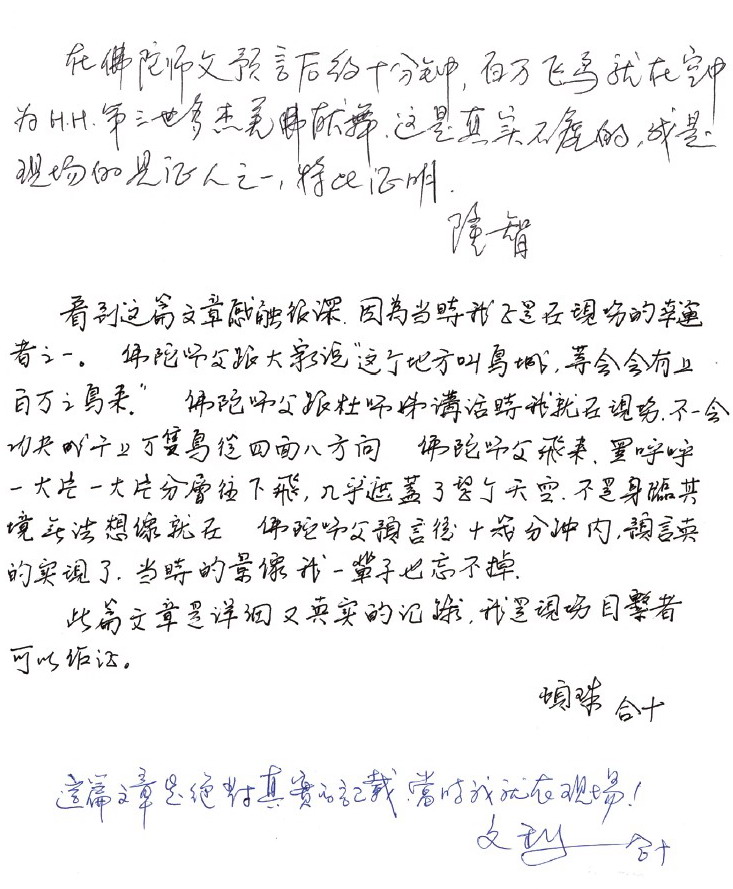 在佛陀师父预言后约十分钟，百万飞鸟就在空中
为H.H.第三世多杰羌佛献舞.这是真实不虚的,我是
现场的见证人之一,特此证明.
隆智
看到这篇文章感触很深.因為当時我正是在現场的幸運
者之一。 佛陀师父跟大家说"这个地方叫鸟城,等会会有上
百万之鳥来." 佛陀师父跟杜师姊講话時我就在現场.不一会
功夫成千上万隻鳥從四面八方向 佛陀师父飛来.黑呼呼
一大片一大片分層往下飛,几乎遮蓋了整个天空.不是身臨其
境無法想像就在 佛陀师父預言後十幾分钟内,預言真
的实現了.当時的景像我一輩子也忘不掉.
此篇文章是详细又真实的记錄,我是現场目擊者
可以作证。
合十
這篇文章是绝對真實的記載.當时我就在现場!
文 合十